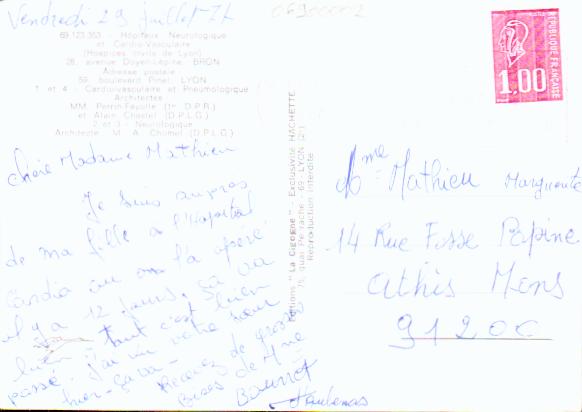 Vendredi 29 juillet 77
06900002
69.123.353 - Hôpitaux Neurologique
et Cardio-Vasculaire
(Hospices Civils de Lyon)
28, avenue Doyen-Lépine, BRON
Adresse postale :
59, boulevard Pinel, LYON
1 et 4 - Cardiovasculaires et Pneumologique
Architectes
MM. Perrin-Fayolle (1er D.P.R.)
et Alain Chomel (D.P.L.G.)
2 et 3 - Neurologique
Architecte M. A. Chomel (D.P.L.G.)
Chère Madame Mathieu
Je suis aupres
de ma fille a l'Hopital
Cardio ou on l'a opéré
il y a 12 jours, ça va
bien tout c'est bien
passé. j'ai vu votre sœur
hier. ça va -
Recevez de grosses
Bises de Mme
Bonnet
Aubenas
Editions "La Cigogne" - Exclusivité HACHETTE
75, quai Perrache - 69 - LYON (2e)
Reproduction interdite
REPUBLIQUE FRANÇAISE
1,00
Mme Mathieu Marguerite
14 Rue Fosse Pepine
Athis Mons
91200